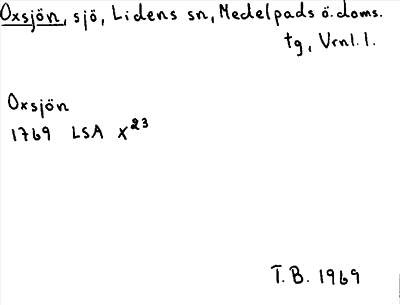 Oxsjön, sjö, Lidens sn, Medelpads ö. doms.
tg, Vrnl. l.
Oxsjön
1769 LSA X23
T.B. 1969